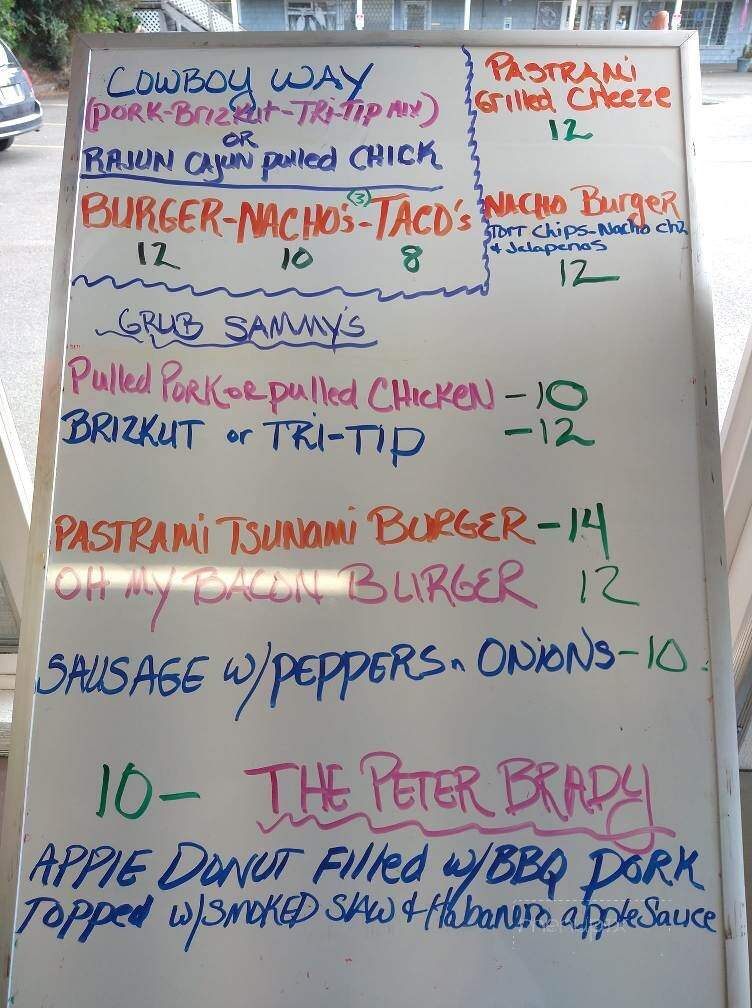 COWBOY WAY
(PORK-BrizKut-TRi-TIP MIX)
OR
RAJUN CAJUN pulled CHICK
BURGER-NACHO's-(3)TACO's
12 10 8
PASTRAMi
Grilled Cheeze
12
NACHO BurgeR
TORT Chips-Nacho chz
& Jalapenos
12
GRUB SAMMY'S
Pulled PORK or pulled CHICKEN -10
BRIZKUT or TRI-TIP -12
PASTRAMi TSUNAMi BURGER-14
OH MY BACON BURGER 12
SAUSAGE W/PEPPERS n ONiONS-10
10- THE PETER BRADY
APPlE DONUT Filled w/BBQ PORK
Topped w/SMOKED SlAW & Habanero appleSauce